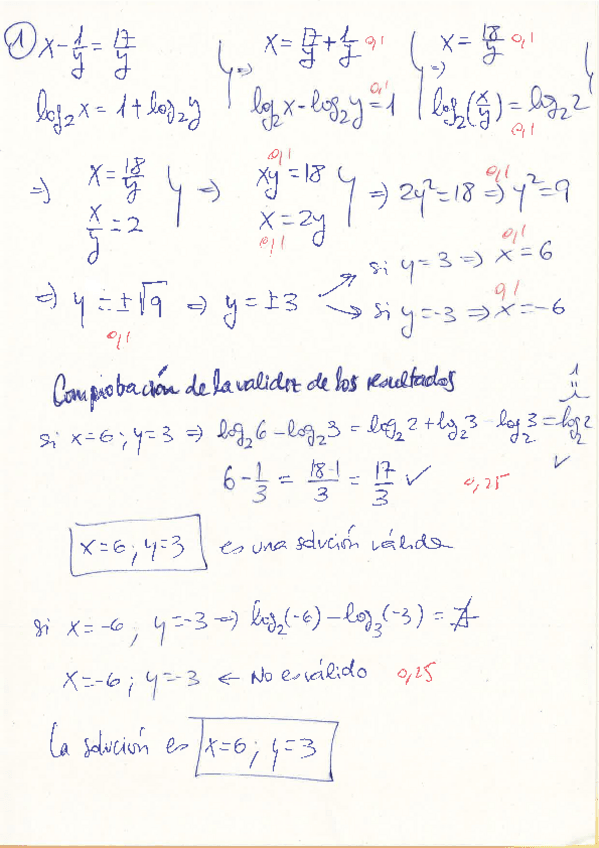 ① x - 1/y = 17/y } => x = 17/y + 1/y 0,1 } => x = 18/y 0,1 }
log₂x = 1 + log₂y log₂x - log₂y = 1 0,1 log₂(x/y) = log₂2 0,1
=> x = 18/y } => xy = 18 0,1 } => 2y² = 18 => y² = 9 0,1
x/y = 2 x = 2y 0,1
=> y = ±√9 0,1 => y = ±3 si y = 3 => x = 6 0,1
si y = -3 => x = -6 0,1
Comprobación de la validez de los resultados
si x=6; y=3 => log₂6 - log₂3 = log₂2 + log₂3 - log₂3 = log₂2 = 1 ✓
6 - 1/3 = 18-1/3 = 17/3 ✓ 0,25
x=6; y=3 es una solución válida
si x=-6; y=-3 => log₂(-6) - log₃(-3) = ∄
x=-6; y=-3 ← No es válido 0,25
La solución es x=6; y=3